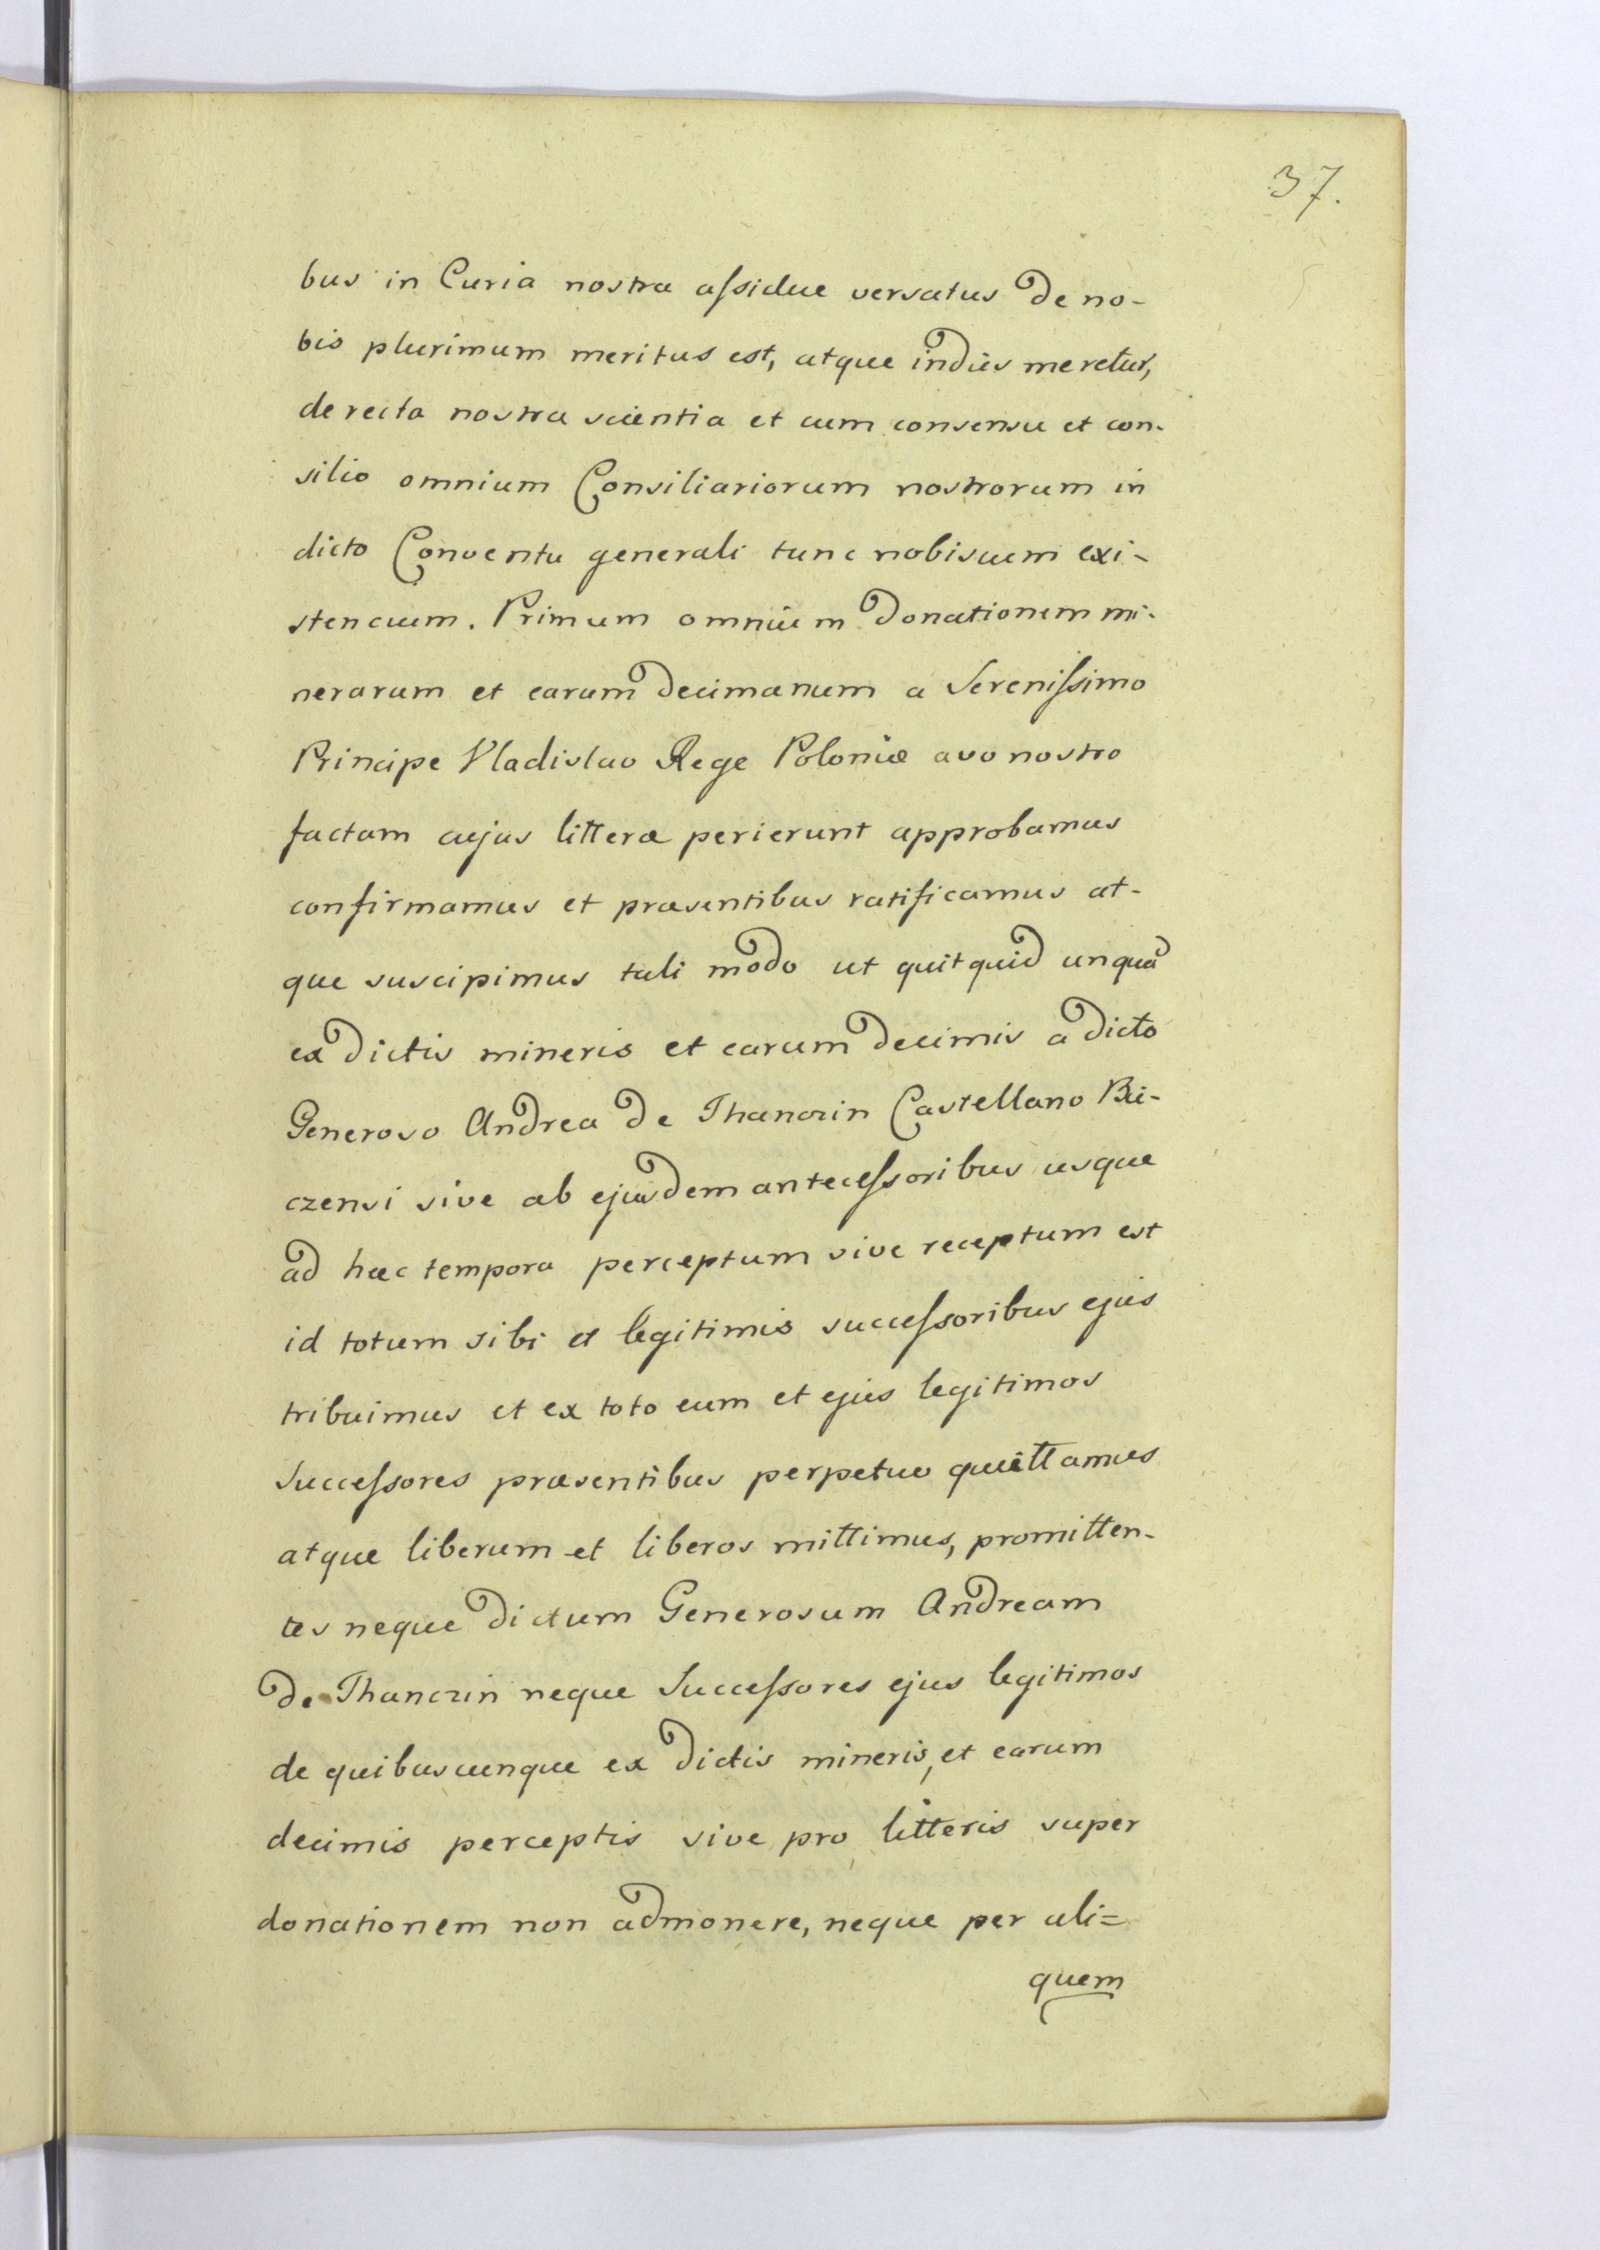 37.
bus in Curia nostra assidue versatus de no-
bis plurimum meritus est, atque indies meretur,
de recta nostra scientia et cum consensu et con-
silio omnium Consiliariorum nostrorum in
dicto Conventu generali tunc nobiscum exi-
stencium. Primum omnium donationem mi-
nerarum et earum decimarum a Serenissimo
Principe Vladislao Rege Poloniæ avo nostro
factam cujus litteræ perierunt approbamus
confirmamus et præsentibus ratificamus at-
que suscipimus tali modo ut quitquid unquã
ex dictis mineris et earum decimis a dicto
Generoso Andrea de Thanczin Castellano Bie-
czensi sive ab ejusdem antecessoribus usque
ad hæc tempora perceptum sive receptum est
id totum sibi et legitimis successoribus ejus
tribuimus et ex toto eum et ejus legitimos
Successores præsentibus perpetuo quiettamus
atque liberum et liberos mittimus, promitten-
tes neque dictum Generosum Andream
de Thanczin neque Successores ejus legitimos
de quibuscunque ex dictis mineris, et earum
decimis perceptis sive pro litteris super
donationem non admonere, neque per ali=
quem